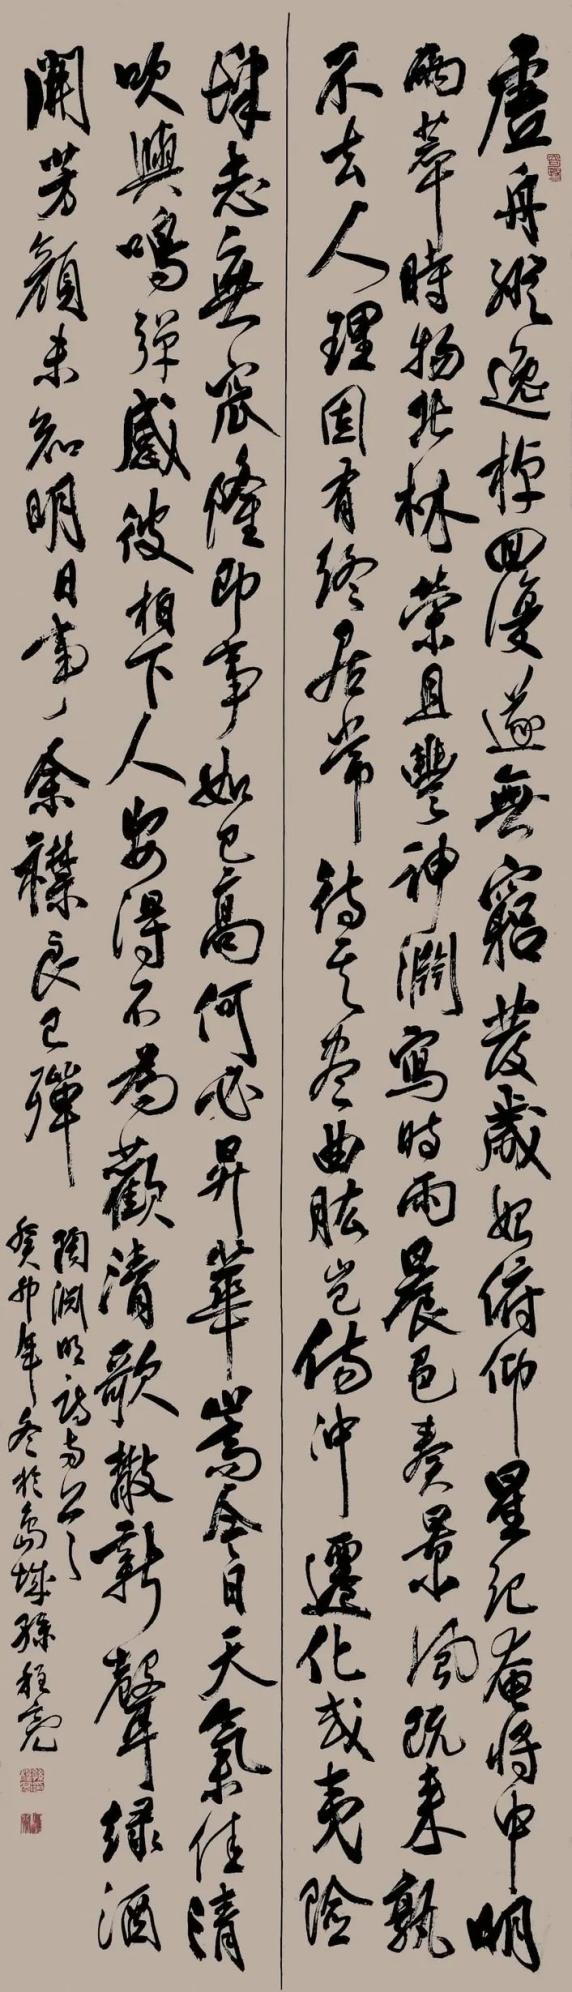 虛舟縱逸棹回復遂無窮發歲始俯仰星紀奄將中明
兩萃時物北林榮且豐神淵寫時雨晨色奏景風既來孰
不去人理固有終居常待其盡曲肱豈傷沖遷化或夷險
肆志無窊隆即事如已高何必昇華嵩今日天氣佳清
吹與鳴彈感彼柏下人安得不為歡清歌散新聲綠酒
開芳顏未知明日事余襟良已殫
陶淵明詩
癸卯年冬於島城孫程亮